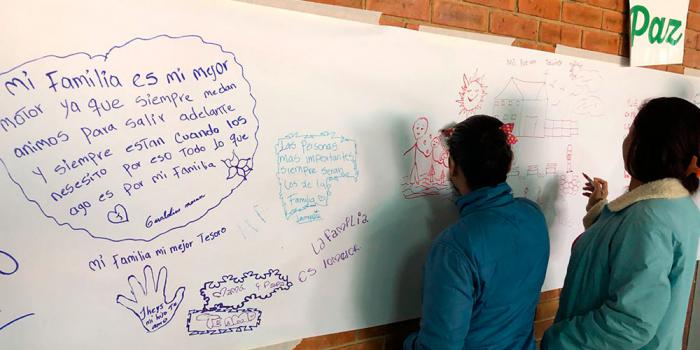 Mi Familia es mi mejor
motor ya que siempre me dan
animos para salir adelante
y siempre estan cuando los
nesesito por eso todo lo que
ago es por mi familia
Mi Familia mi mejor Tesoro
Las Personas
mas importantes
siempre seran
Los de la
Familia
La Familia
es lo mejor
Mamá y Papá
Paz